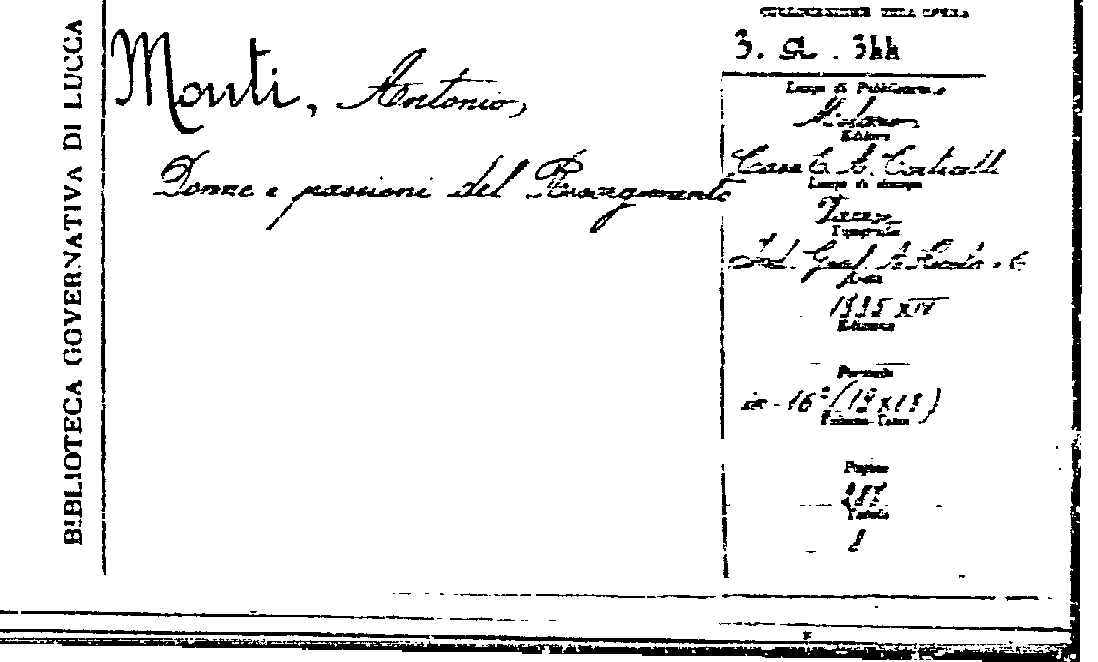 BIBLIOTECA GOVERNATIVA DI LUCCA
Monti, Antonio,
Donne e passioni del Risorgimento
COLLOCAZIONE DELL'OPERA
3. a. 344
Luogo di Pubblicazione
Milano
Editore
Casa E. A. Corticelli
Luogo di stampa
Tipografia
Ind. Graf. A.
Data
1935 XIV
Edizione
Formato
in-16° (19x13)
Volumi-Tomi
Pagine
Tavole